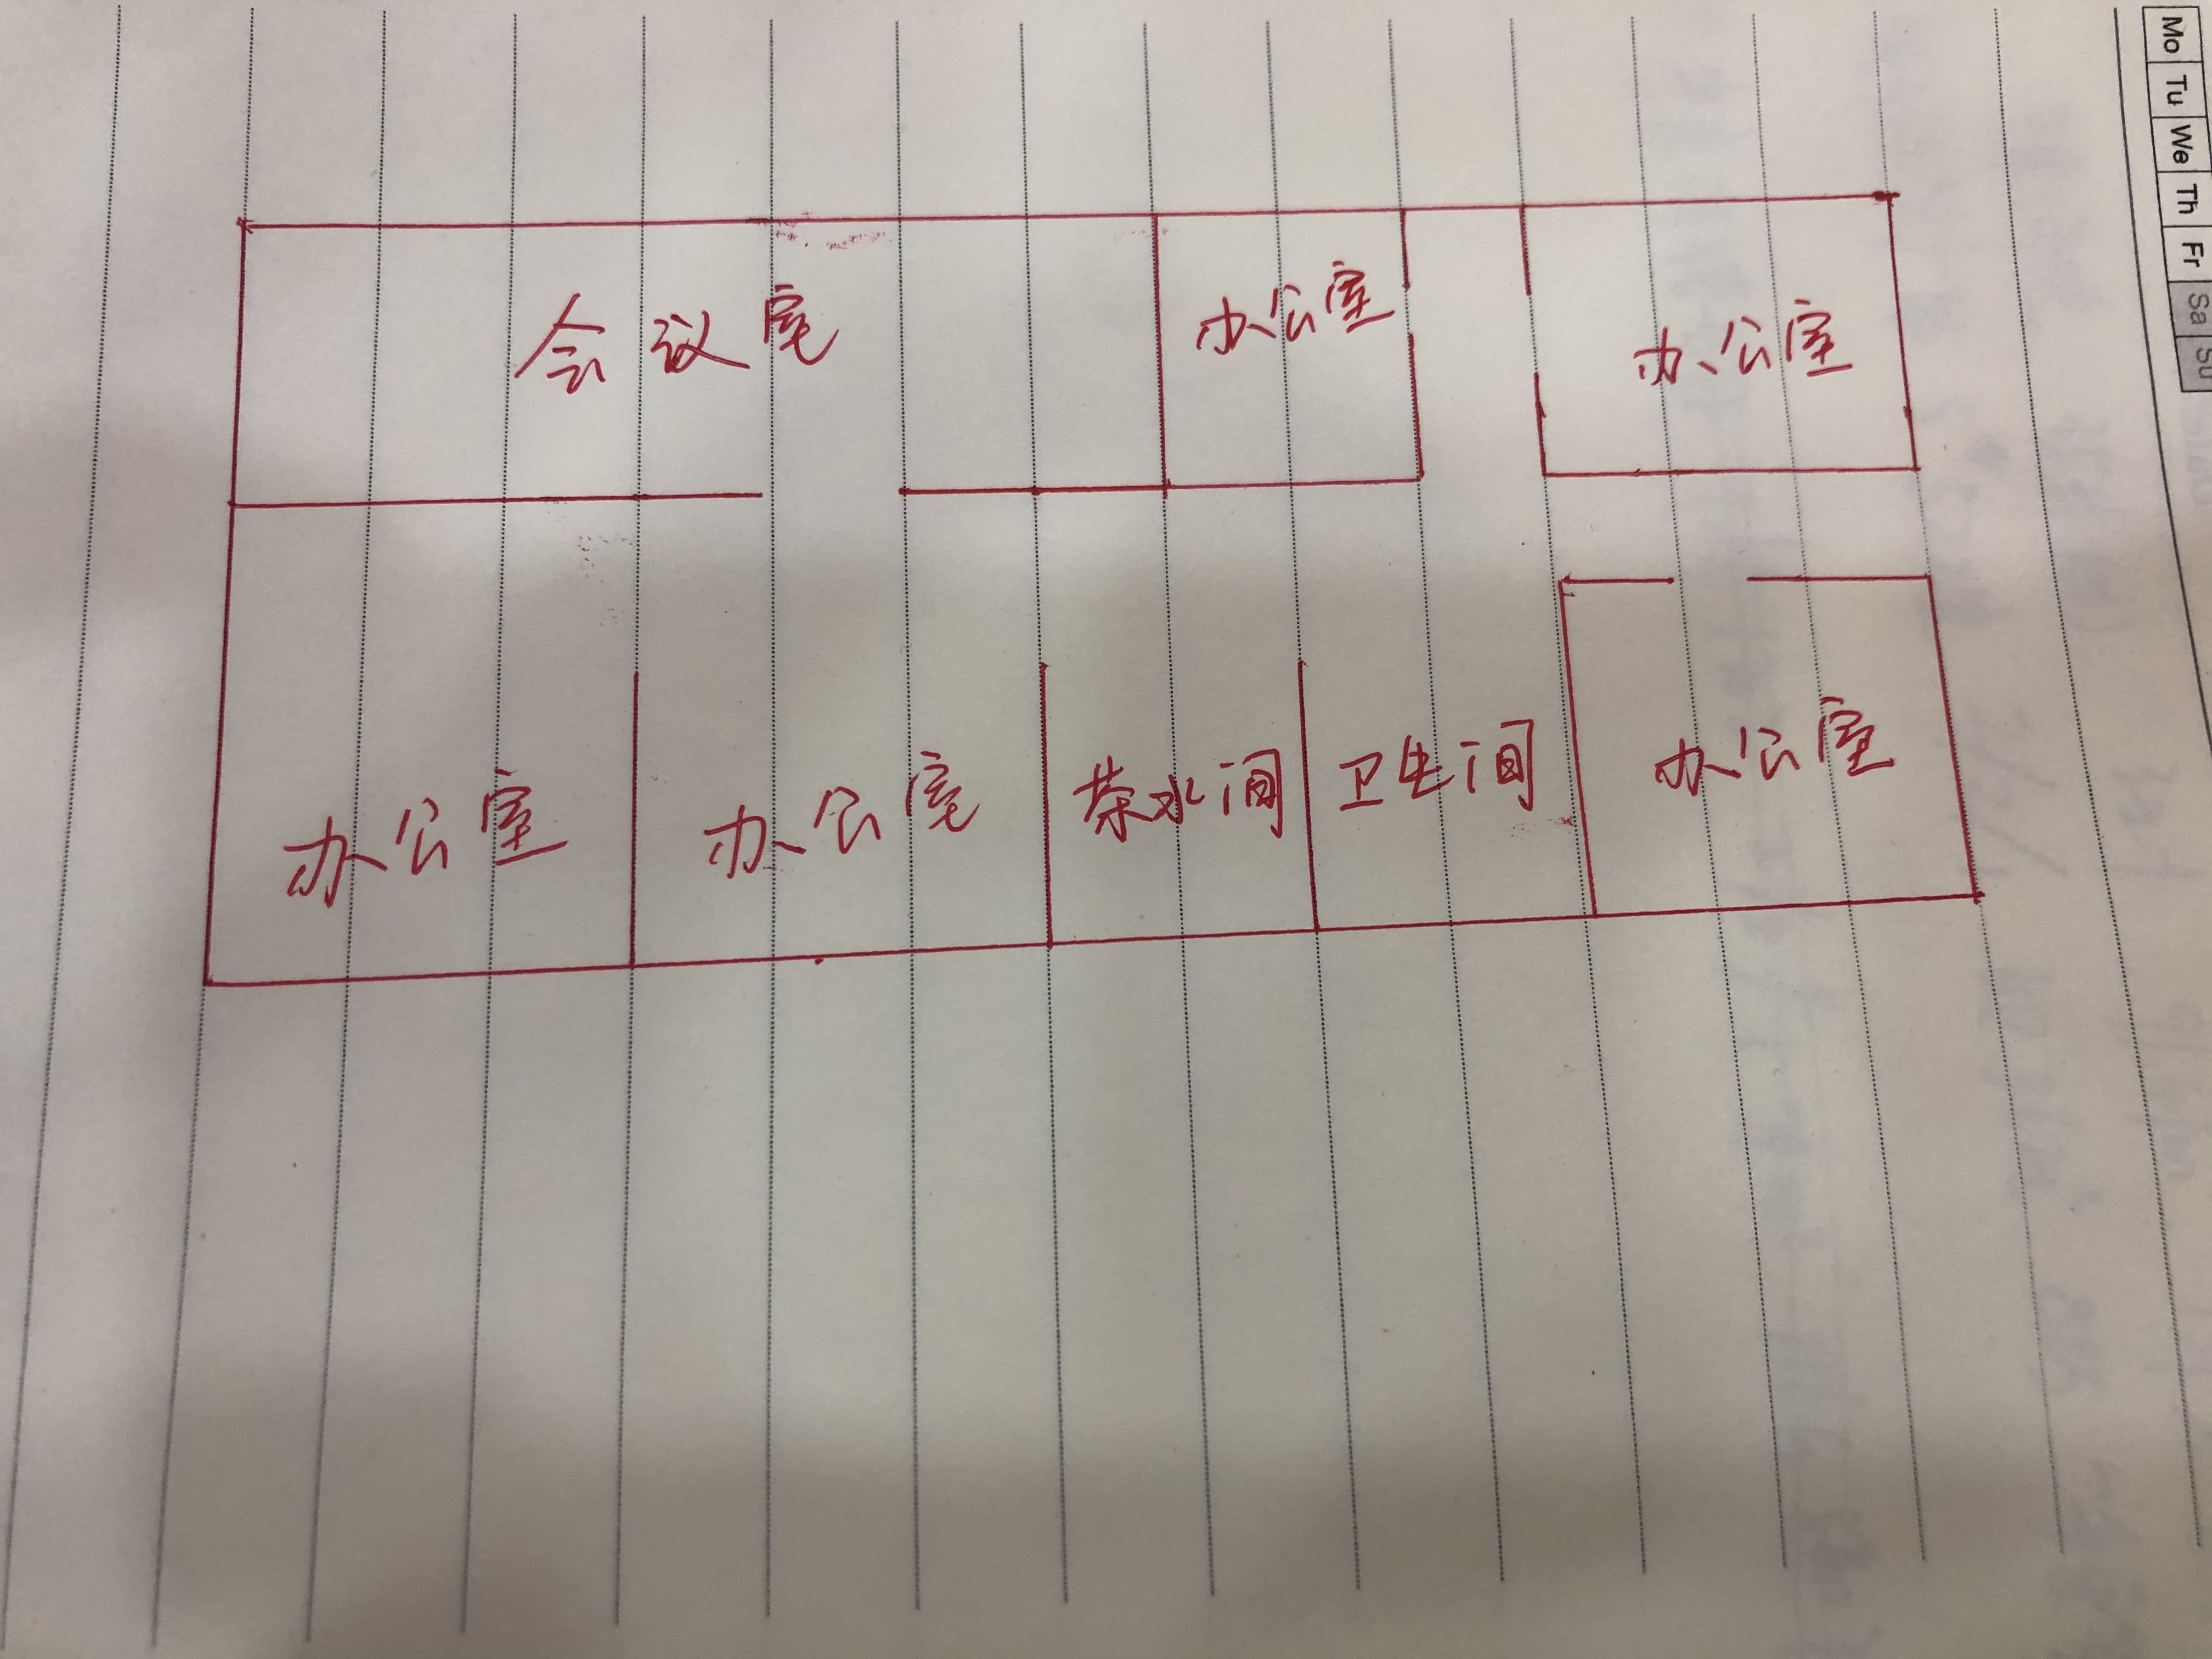 Mo Tu We Th Fr Sa Su
会议室
办公室
办公室
办公室
办公室
茶水间
卫生间
办公室